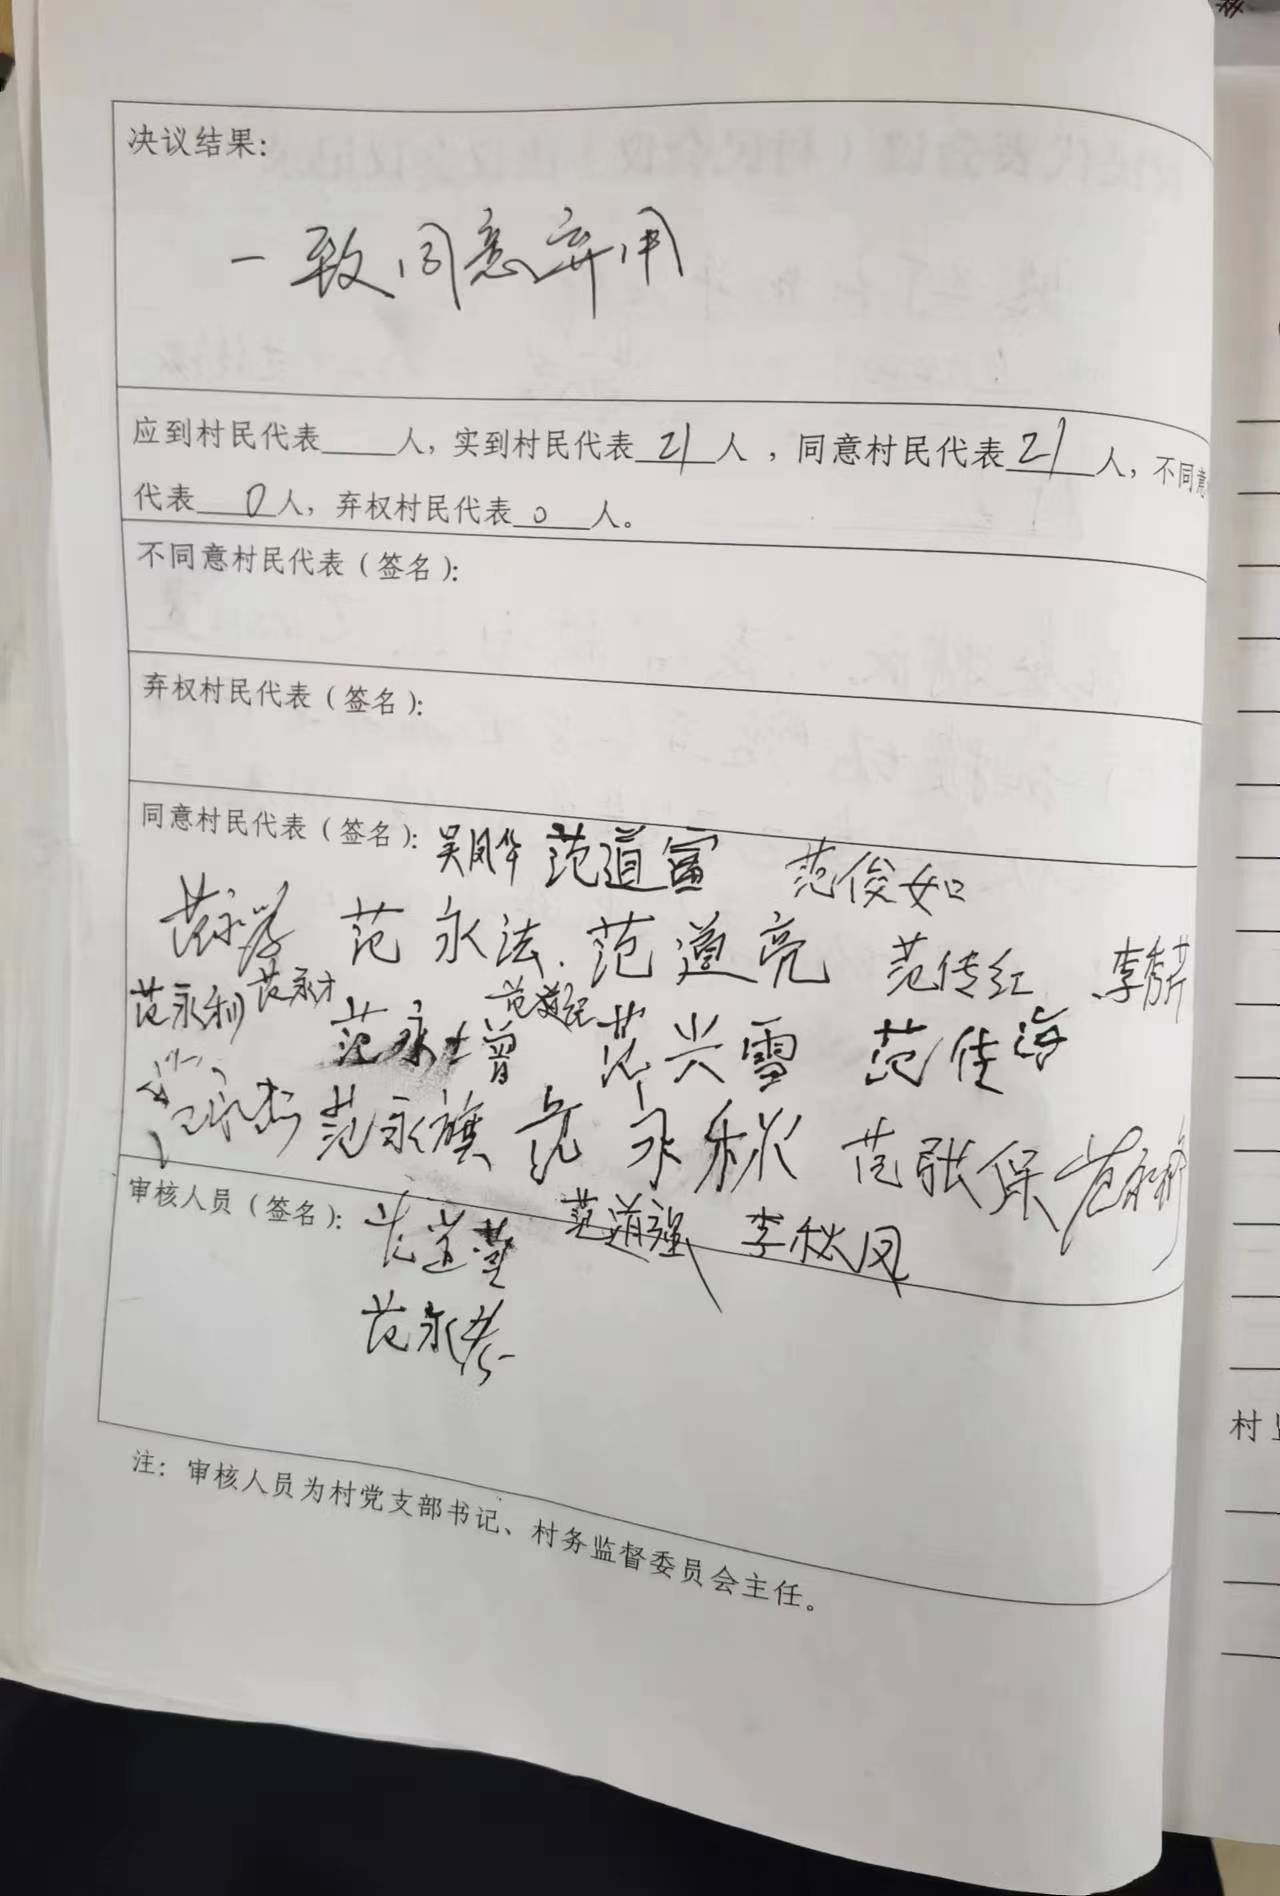 决议结果:
一致同意弃用
应到村民代表____人，实到村民代表 21 人，同意村民代表 21 人，不同意
代表 0 人，弃权村民代表 0 人。
不同意村民代表（签名）：
弃权村民代表（签名）：
同意村民代表（签名）：吴凤华 范道富 范俊如
范永法 范道亮 范传红 李秀芹
范永利 范永才 范永增 范兴雪 范佳海
范永杰 范永旗 范永秋 范张保
审核人员（签名）： 范道强 李秋凤
范永
注：审核人员为村党支部书记、村务监督委员会主任。
村